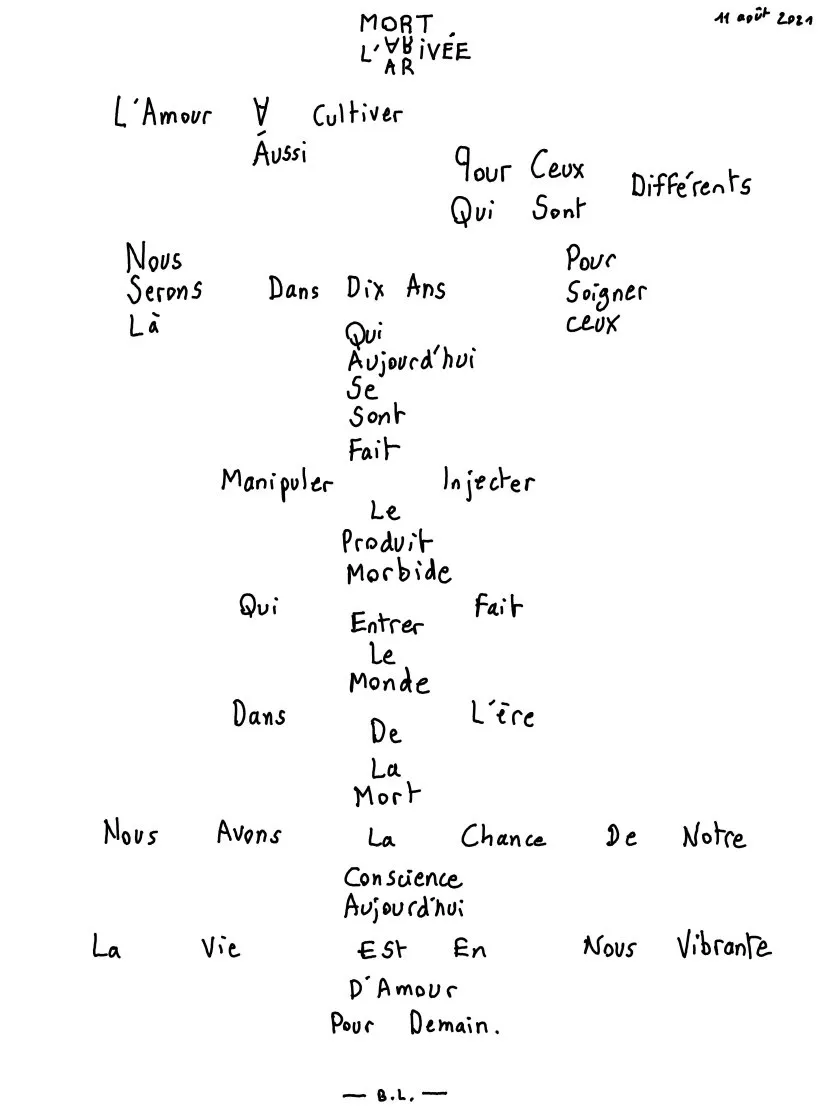 11 août 2021
MORT
L'ARIVÉE
AR
L'Amour ∀ Cultiver
Áussi
qour Ceux
Différents
Qui Sont
Nous Pour
Serons Dans Dix Ans Soigner
Là Qui ceux
Aujourd'hui
Se
Sont
Fait
Manipuler Injecter
Le
Produit
Morbide
Qui Fait
Entrer
Le
Monde
Dans L'ère
De
La
Mort
Nous Avons La Chance De Notre
Conscience
Aujourd'hui
La Vie Est En Nous Vibrante
D'Amour
Pour Demain.
— B.L. —